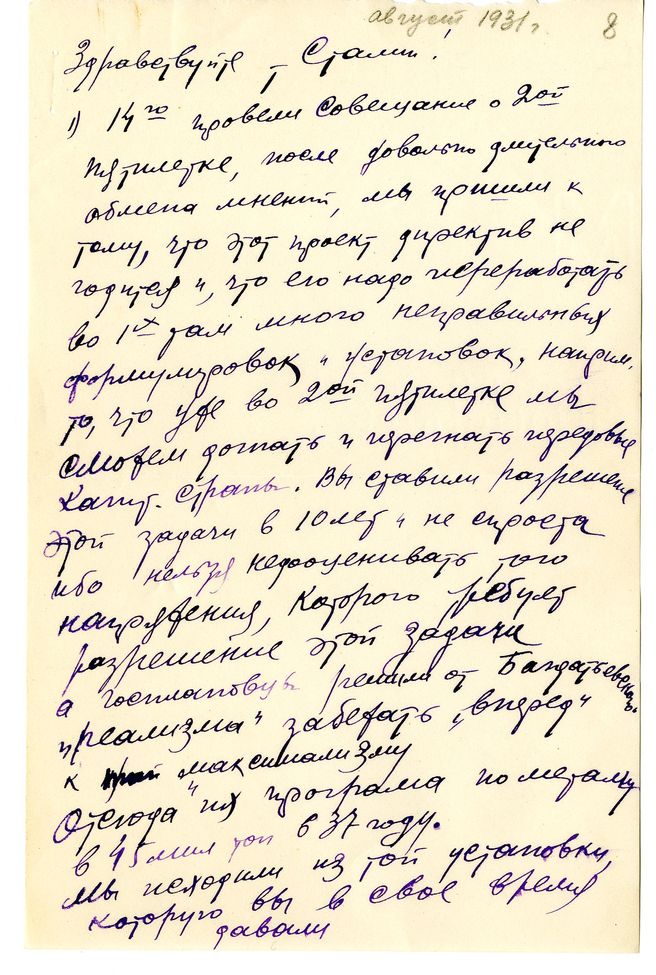 август 1931 г.
8
Здравствуйте т Сталин!
1) 14го провели Совещание о 2ой
пятилетке, после довольно длительного
обмена мнений, мы пришли к
тому, что этот проект директив не
годится и, что его надо переработать
во 1х там много неправильных
формулировок и установок, наприм.
то, что уже во 2ой пятилетке мы
сможем догнать и перегнать передовые
капит. страны. Вы ставили разрешение
этой задачи в 10 лет и не спроста
ибо нельзя недооценивать того
напряжения, которого требует
разрешение этой задачи
а госплановцы решили от
"реализма" забежать "вперед"
к максимализму
Отсюда и их програма по металу
в 45 мил тон в 37 году.
Мы исходили из той установки,
которую вы в свое время
давали